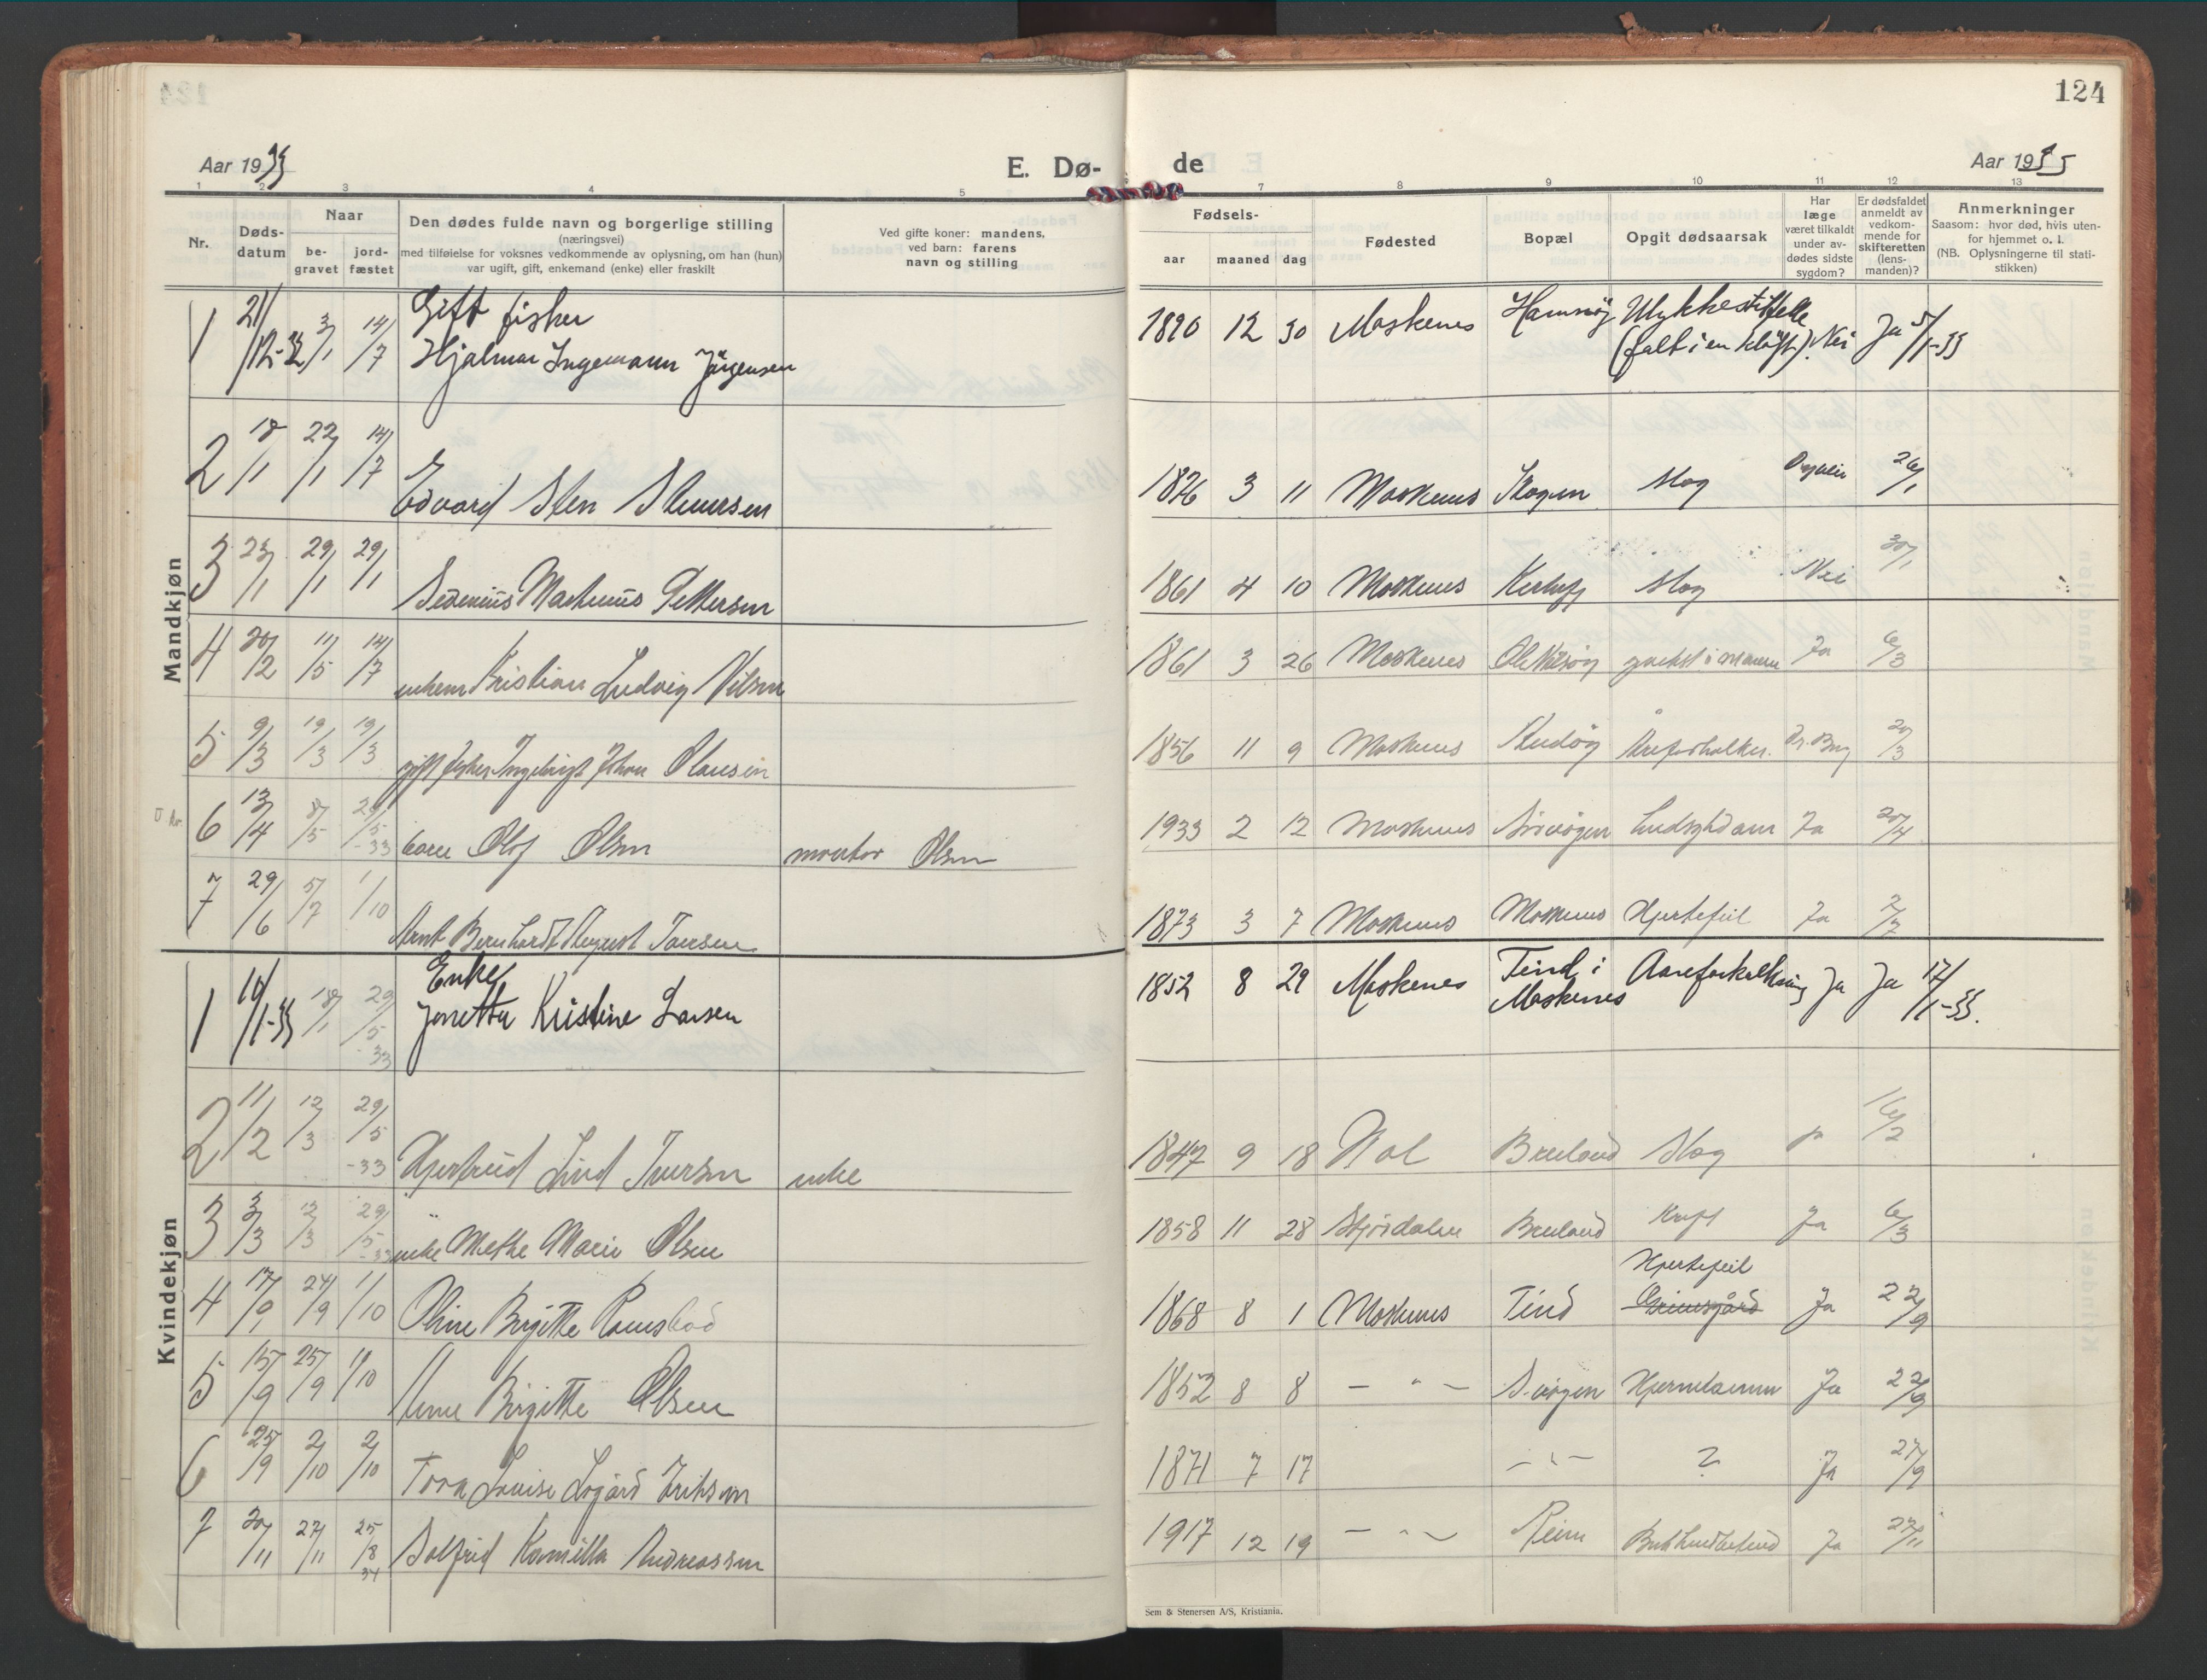 124
Aar 1933
E. Dø-
de
Aar 1933
1 2 3 4 5 7 8 9 10 11 12 13
Nr.
Dødsdatum
Naar
begravet
jordfæstet
Den dødes fulde navn og borgerlige stilling
(næringsvei)
med tilføielse for voksnes vedkommende av oplysning, om han (hun)
var ugift, gift, enkemand (enke) eller fraskilt
Ved gifte koner: mandens,
ved barn: farens
navn og stilling
Fødsels-
aar maaned dag
Fødested
Bopæl
Opgit dødsaarsak
Har
læge
været tilkaldt
under av-
dødes sidste
sygdom?
Er dødsfaldet
anmeldt av
vedkom-
mende for
skifteretten
(lens-
manden)?
Anmerkninger
Saasom: hvor død, hvis uten-
for hjemmet o. l.
(NB. Oplysningerne til stati-
stikken)
Mandkjøn
1 21/12-32 3/1 14/7 Gift fisker
Hjalmar Ingemann Jørgensen 1890 12 30 Moskenes Hamnøy Ulykkestilfelle
(falt i en kløft). Nei Ja 5/1-33
2 18/1 22/1 14/7 Edvard Sten 1826 3 11 Moskenes Slag 26/1
3 23/1 29/1 29/1 Pettersen 1861 4 10 Moskenes Slag Nei 30/1
4 20/2 11/5 14/7 Kristian Ludvig Nilsen 1861 3 26 Moskenes Ja 6/3
5 9/3 19/3 19/3 gift fisker Johan Olausen 1856 11 9 Moskenes 20/3
6 13/4 8/5 29/5-33 Olaf Olsen Olsen 1933 2 12 Moskenes Sørvågen Ja 20/4
7 29/6 5/7 1/10 Arnt Bernhardt August Jansen 1873 3 7 Moskenes Moskenes Hjertefeil Ja 2/7
Kvindekjøn
1 10/1-33 18/1 29/5-33 Enke
Jonetta Kristine Larsen 1852 8 29 Moskenes Tind i
Moskenes Aareforkalkning Ja Ja 17/1-33.
2 11/2 12/3 29/5-33 Lind Iversen enke 1847 9 18 Hol Breiland Slag 16/2
3 3/3 12/3 29/5-33 enke Methe Marie Olsen 1858 11 28 Stjørdalen Breiland Kreft Ja 6/3
4 17/9 24/9 1/10 Oline Birgitte 1868 8 1 Moskenes Tind Hjertefeil Ja 22/9
5 15/9 25/9 1/10 Anne Birgitte Olsen 1852 8 8 — " — Ja 22/9
6 25/9 2/10 2/10 Tora Louise Eriksen 1871 7 17 — " — ? Ja 27/9
7 20/11 27/11 25/8 34 Solfrid Kamilla Andreassen 1917 12 19 — " — Reine Ja 27/11
Sem & Stenersen A/S, Kristiania.